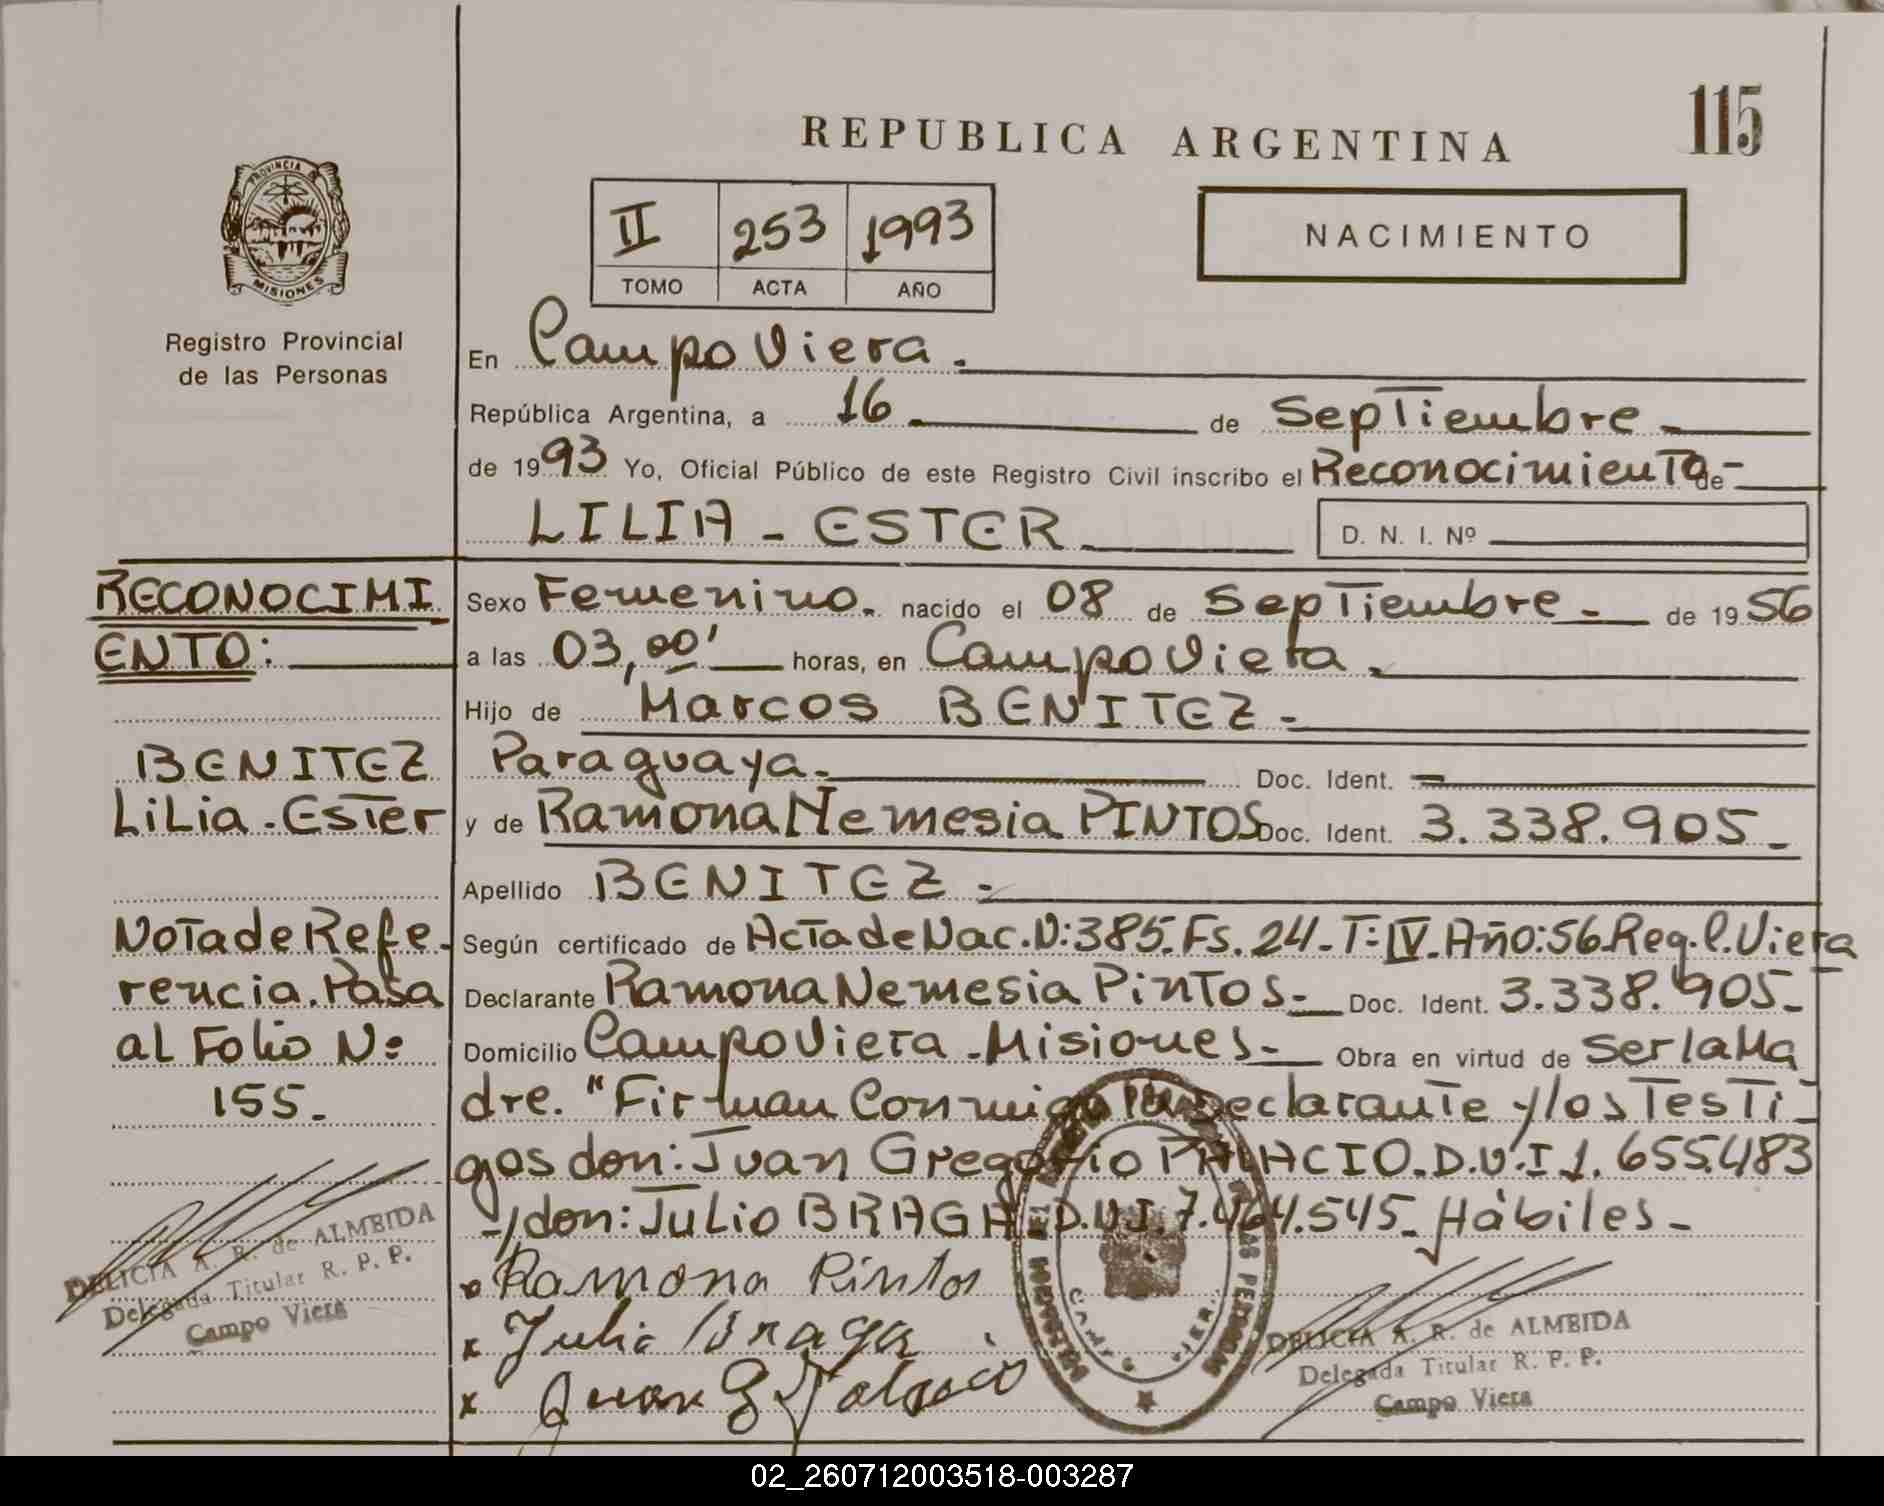 115
REPUBLICA ARGENTINA
PROVINCIA DE
MISIONES
II 253 1993
TOMO ACTA AÑO
NACIMIENTO
Registro Provincial
de las Personas
En Campo Viera.
República Argentina, a 16 de Septiembre
de 1993 Yo, Oficial Público de este Registro Civil inscribo el Reconocimiento de
LILIA - ESTER D. N. I. Nº
RECONOCIMI
ENTO:
BENITEZ
Lilia - Ester
Nota de Refe-
rencia. Pasa
al Folio Nº
155.
Sexo Femenino. nacido el 08 de Septiembre - de 1956
a las 03,00' horas, en Campo Viera.
Hijo de Marcos BENITEZ -
Paraguaya. Doc. Ident.
y de Ramona Nemesia PINTOS Doc. Ident. 3.338.905 -
Apellido BENITEZ -
Según certificado de Acta de Nac. N:385. Fs. 24 - T: IV. Año:56 Reg. C. Viera
Declarante Ramona Nemesia Pintos - Doc. Ident. 3.338.905 -
Domicilio Campo Viera - Misiones - Obra en virtud de Ser la Ma
dre. "Firman Conmigo la Declarante y los Testi-
gos don: Juan Gregorio PALACIO. D.N.I 1.655.483
y don: Julio BRAGA D.N.I. 7.464.545 - Hábiles -
x Ramona Pintos
x Julio Braga
x Juan G Palacio
DELICIA A. R. de ALMEIDA
Delegada Titular R. P. P.
Campo Viera
DELICIA A. R. de ALMEIDA
Delegada Titular R. P. P.
Campo Viera
02_260712003518-003287